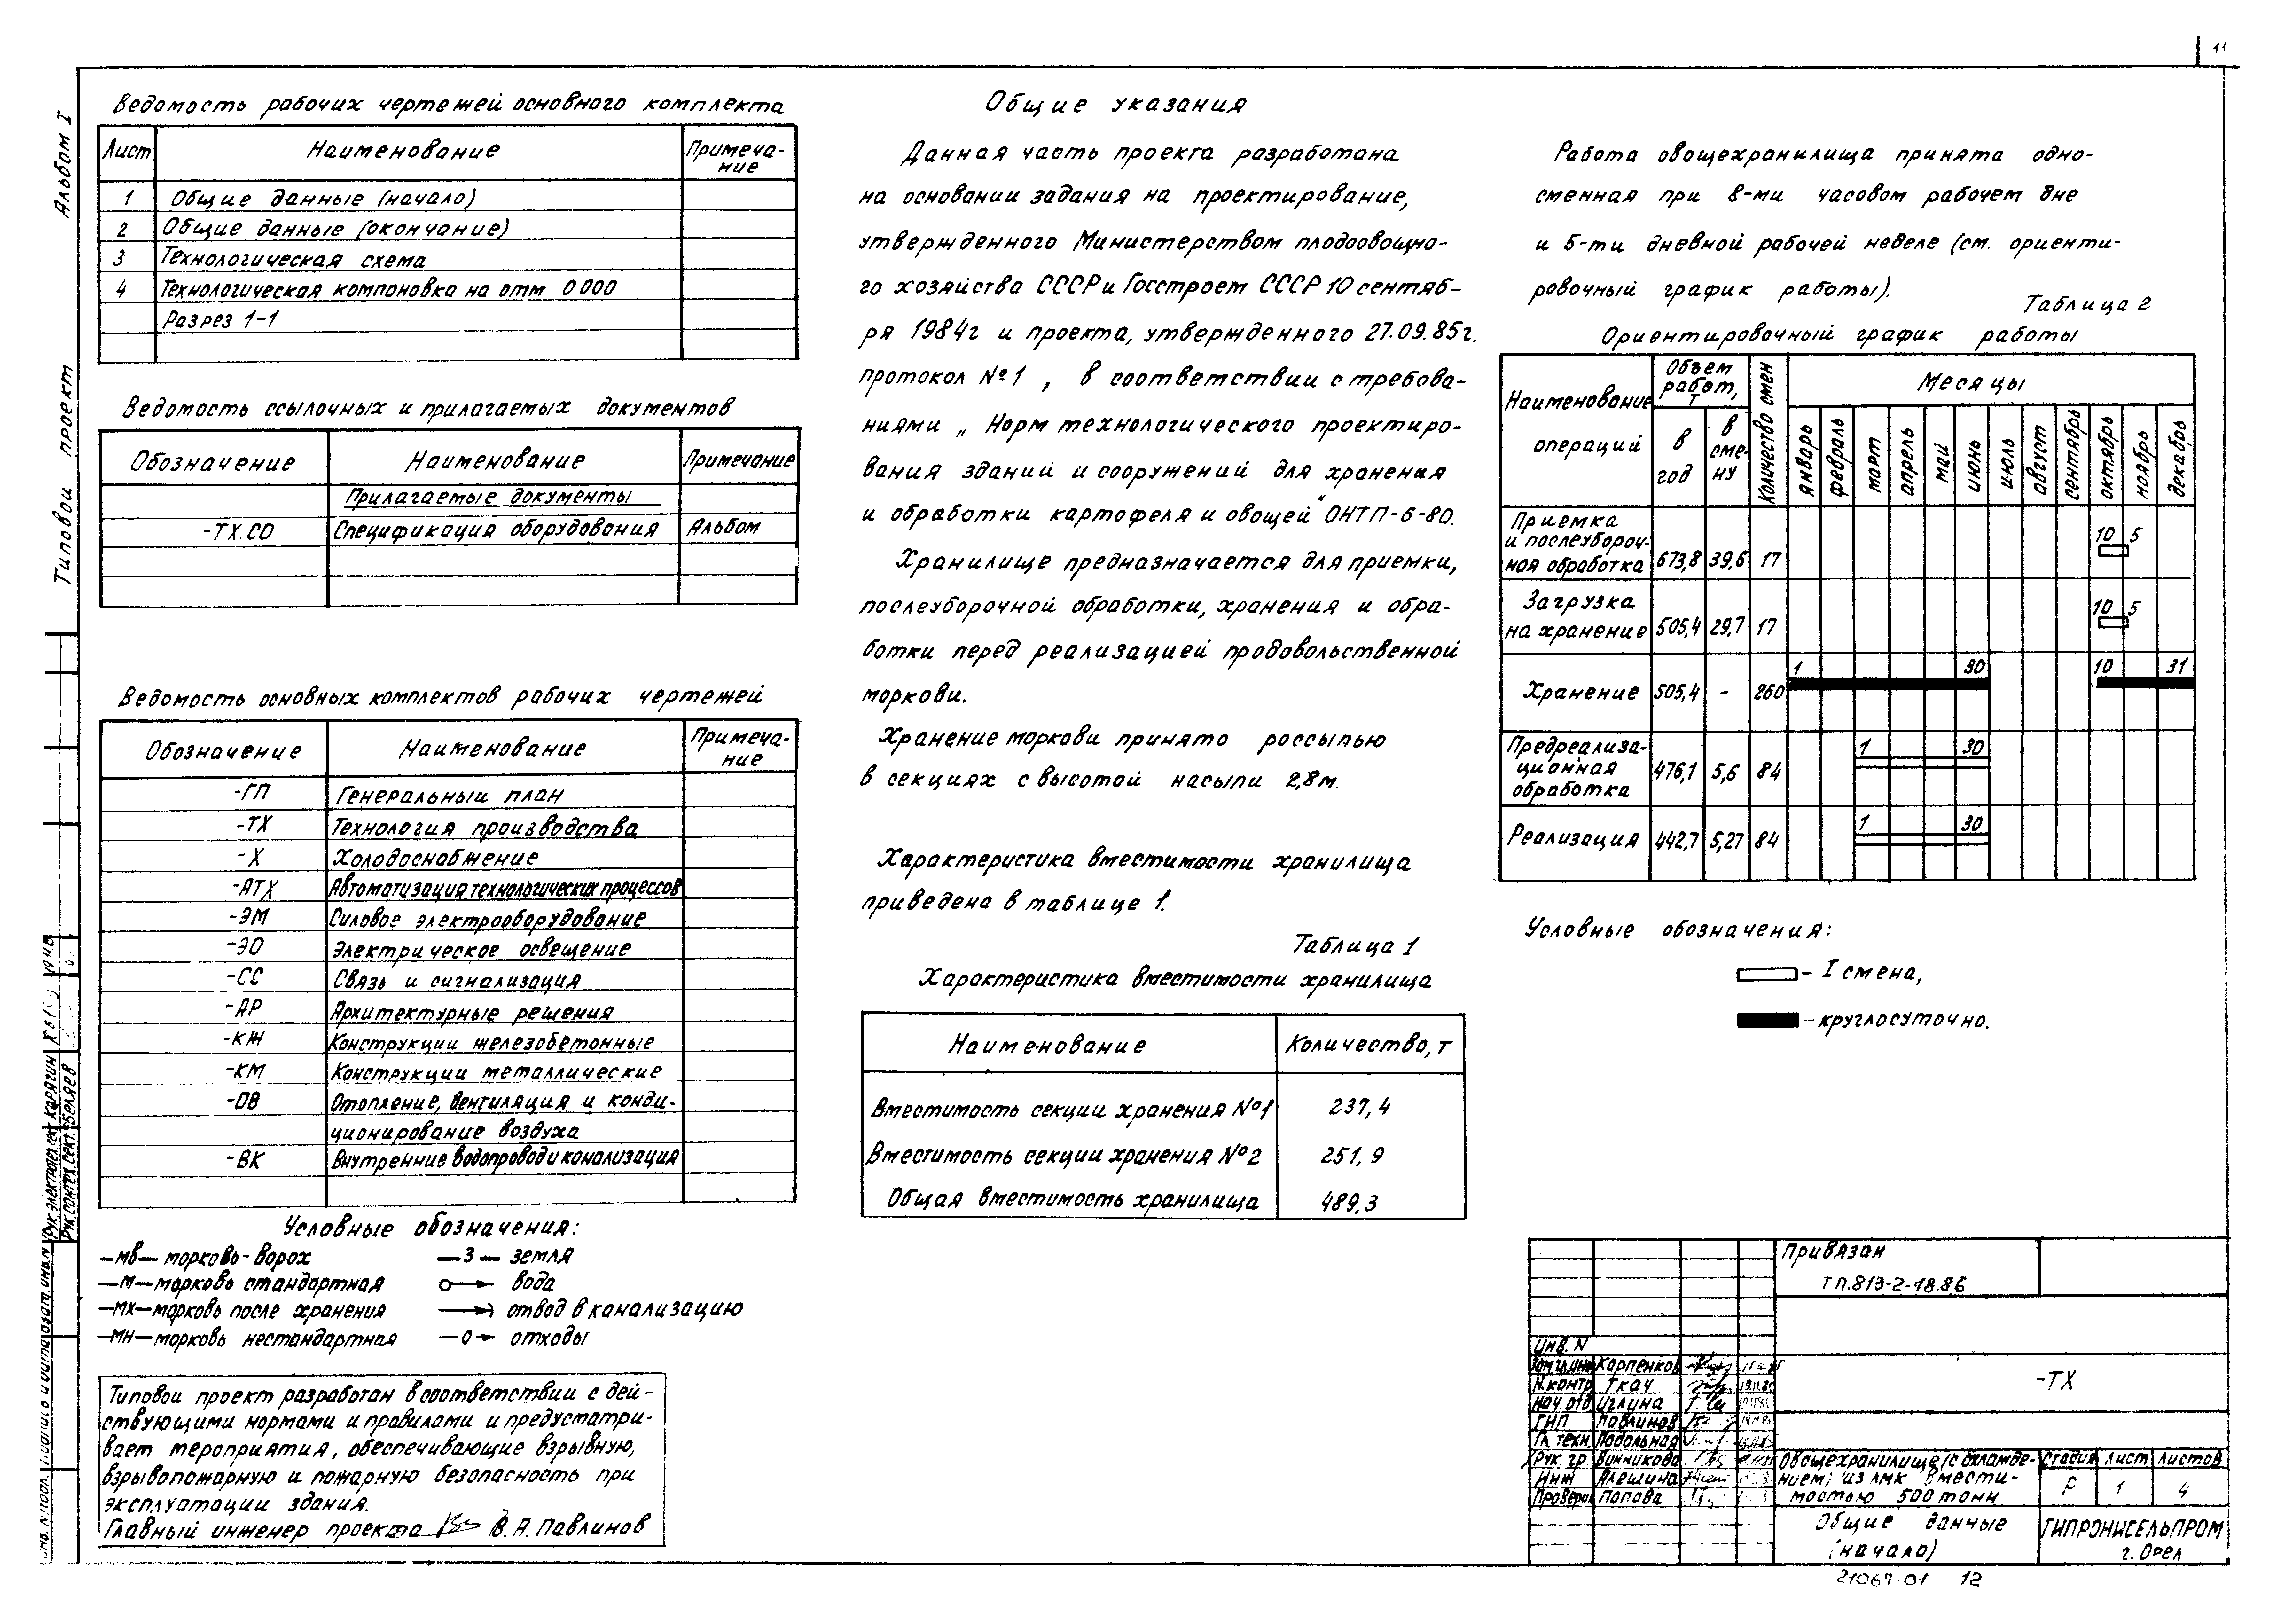 11
Альбом I
Типовой проект
Ведомость рабочих чертежей основного комплекта
Лист Наименование Примеча-
ние
1 Общие данные (начало)
2 Общие данные (окончание)
3 Технологическая схема
4 Технологическая компоновка на отм 0 000
Разрез 1-1
Ведомость ссылочных и прилагаемых документов
Обозначение Наименование Примечание
Прилагаемые документы
-ТХ.СО Спецификация оборудования Альбом
Ведомость основных комплектов рабочих чертежей
Обозначение Наименование Примеча-
ние
-ГП Генеральный план
-ТХ Технология производства
-Х Холодоснабжение
-АТХ Автоматизация технологических процессов
-ЭМ Силовое электрооборудование
-ЭО Электрическое освещение
-СС Связь и сигнализация
-АР Архитектурные решения
-КЖ Конструкции железобетонные
-КМ Конструкции металлические
-ОВ Отопление, вентиляция и конди-
ционирование воздуха
-ВК Внутренние водопровод и канализация
Условные обозначения:
—мв— морковь-ворох
—М— морковь стандартная
—МХ— морковь после хранения
—МН— морковь нестандартная
—З— земля
вода
отвод в канализацию
—О— отходы
Типовой проект разработан в соответствии с дей-
ствующими нормами и правилами и предусматри-
вает мероприятия, обеспечивающие взрывную,
взрывопожарную и пожарную безопасность при
эксплуатации здания.
Главный инженер проекта В.А.Павлинов
Общие указания
Данная часть проекта разработана
на основании задания на проектирование,
утвержденного Министерством плодоовощно-
го хозяйства СССР и Госстроем СССР 10 сентяб-
ря 1984г и проекта, утвержденного 27.09.85г.
протокол №1, в соответствии с требова-
ниями „Норм технологического проектиро-
вания зданий и сооружений для хранения
и обработки картофеля и овощей" ОНТП-6-80.
Хранилище предназначается для приемки,
послеуборочной обработки, хранения и обра-
ботки перед реализацией продовольственной
моркови.
Хранение моркови принято россыпью
в секциях с высотой насыпи 2,8м.
Характеристика вместимости хранилища
приведена в таблице 1.
Таблица 1
Характеристика вместимости хранилища
Наименование Количество, т
Вместимость секции хранения №1 237,4
Вместимость секции хранения №2 251,9
Общая вместимость хранилища 489,3
Работа овощехранилища принята одно-
сменная при 8-ми часовом рабочем дне
и 5-ти дневной рабочей неделе (см. ориенти-
ровочный график работы).
Таблица 2
Ориентировочный график работы
Наименование операций
Объем работ, т
в год
в сме-
ну
Количество смен
Месяцы
январь февраль март апрель май июнь июль август сентябрь октябрь ноябрь декабрь
Приемка
и послеубороч-
ная обработка 673,8 39,6 17 10 5
Загрузка
на хранение 505,4 29,7 17 10 5
Хранение 505,4 - 260 1 30 10 31
Предреализа-
ционная
обработка 476,1 5,6 84 1 30
Реализация 442,7 5,27 84 1 30
Условные обозначения:
- I смена,
- круглосуточно.
Привязан
ТП.813-2-18.86
Инв. N
Карпенков
Н.контр Ткач
Нач.отд Иглина
ГИП Павлинов
Гл.техн. Подольная
Рук.гр. Винникова
Инж Алешина
Проверил Попова
-ТХ
Овощехранилище (с охлажде-
нием) из ЛМК вмести-
мостью 500 тонн
Стадия Лист Листов
Р 1 4
Общие данные
(начало)
ГИПРОНИСЕЛЬПРОМ
г. Орел
21067-01 12
Рук.электротех.сект. Карягин
Рук.сантех.сект. Беляев